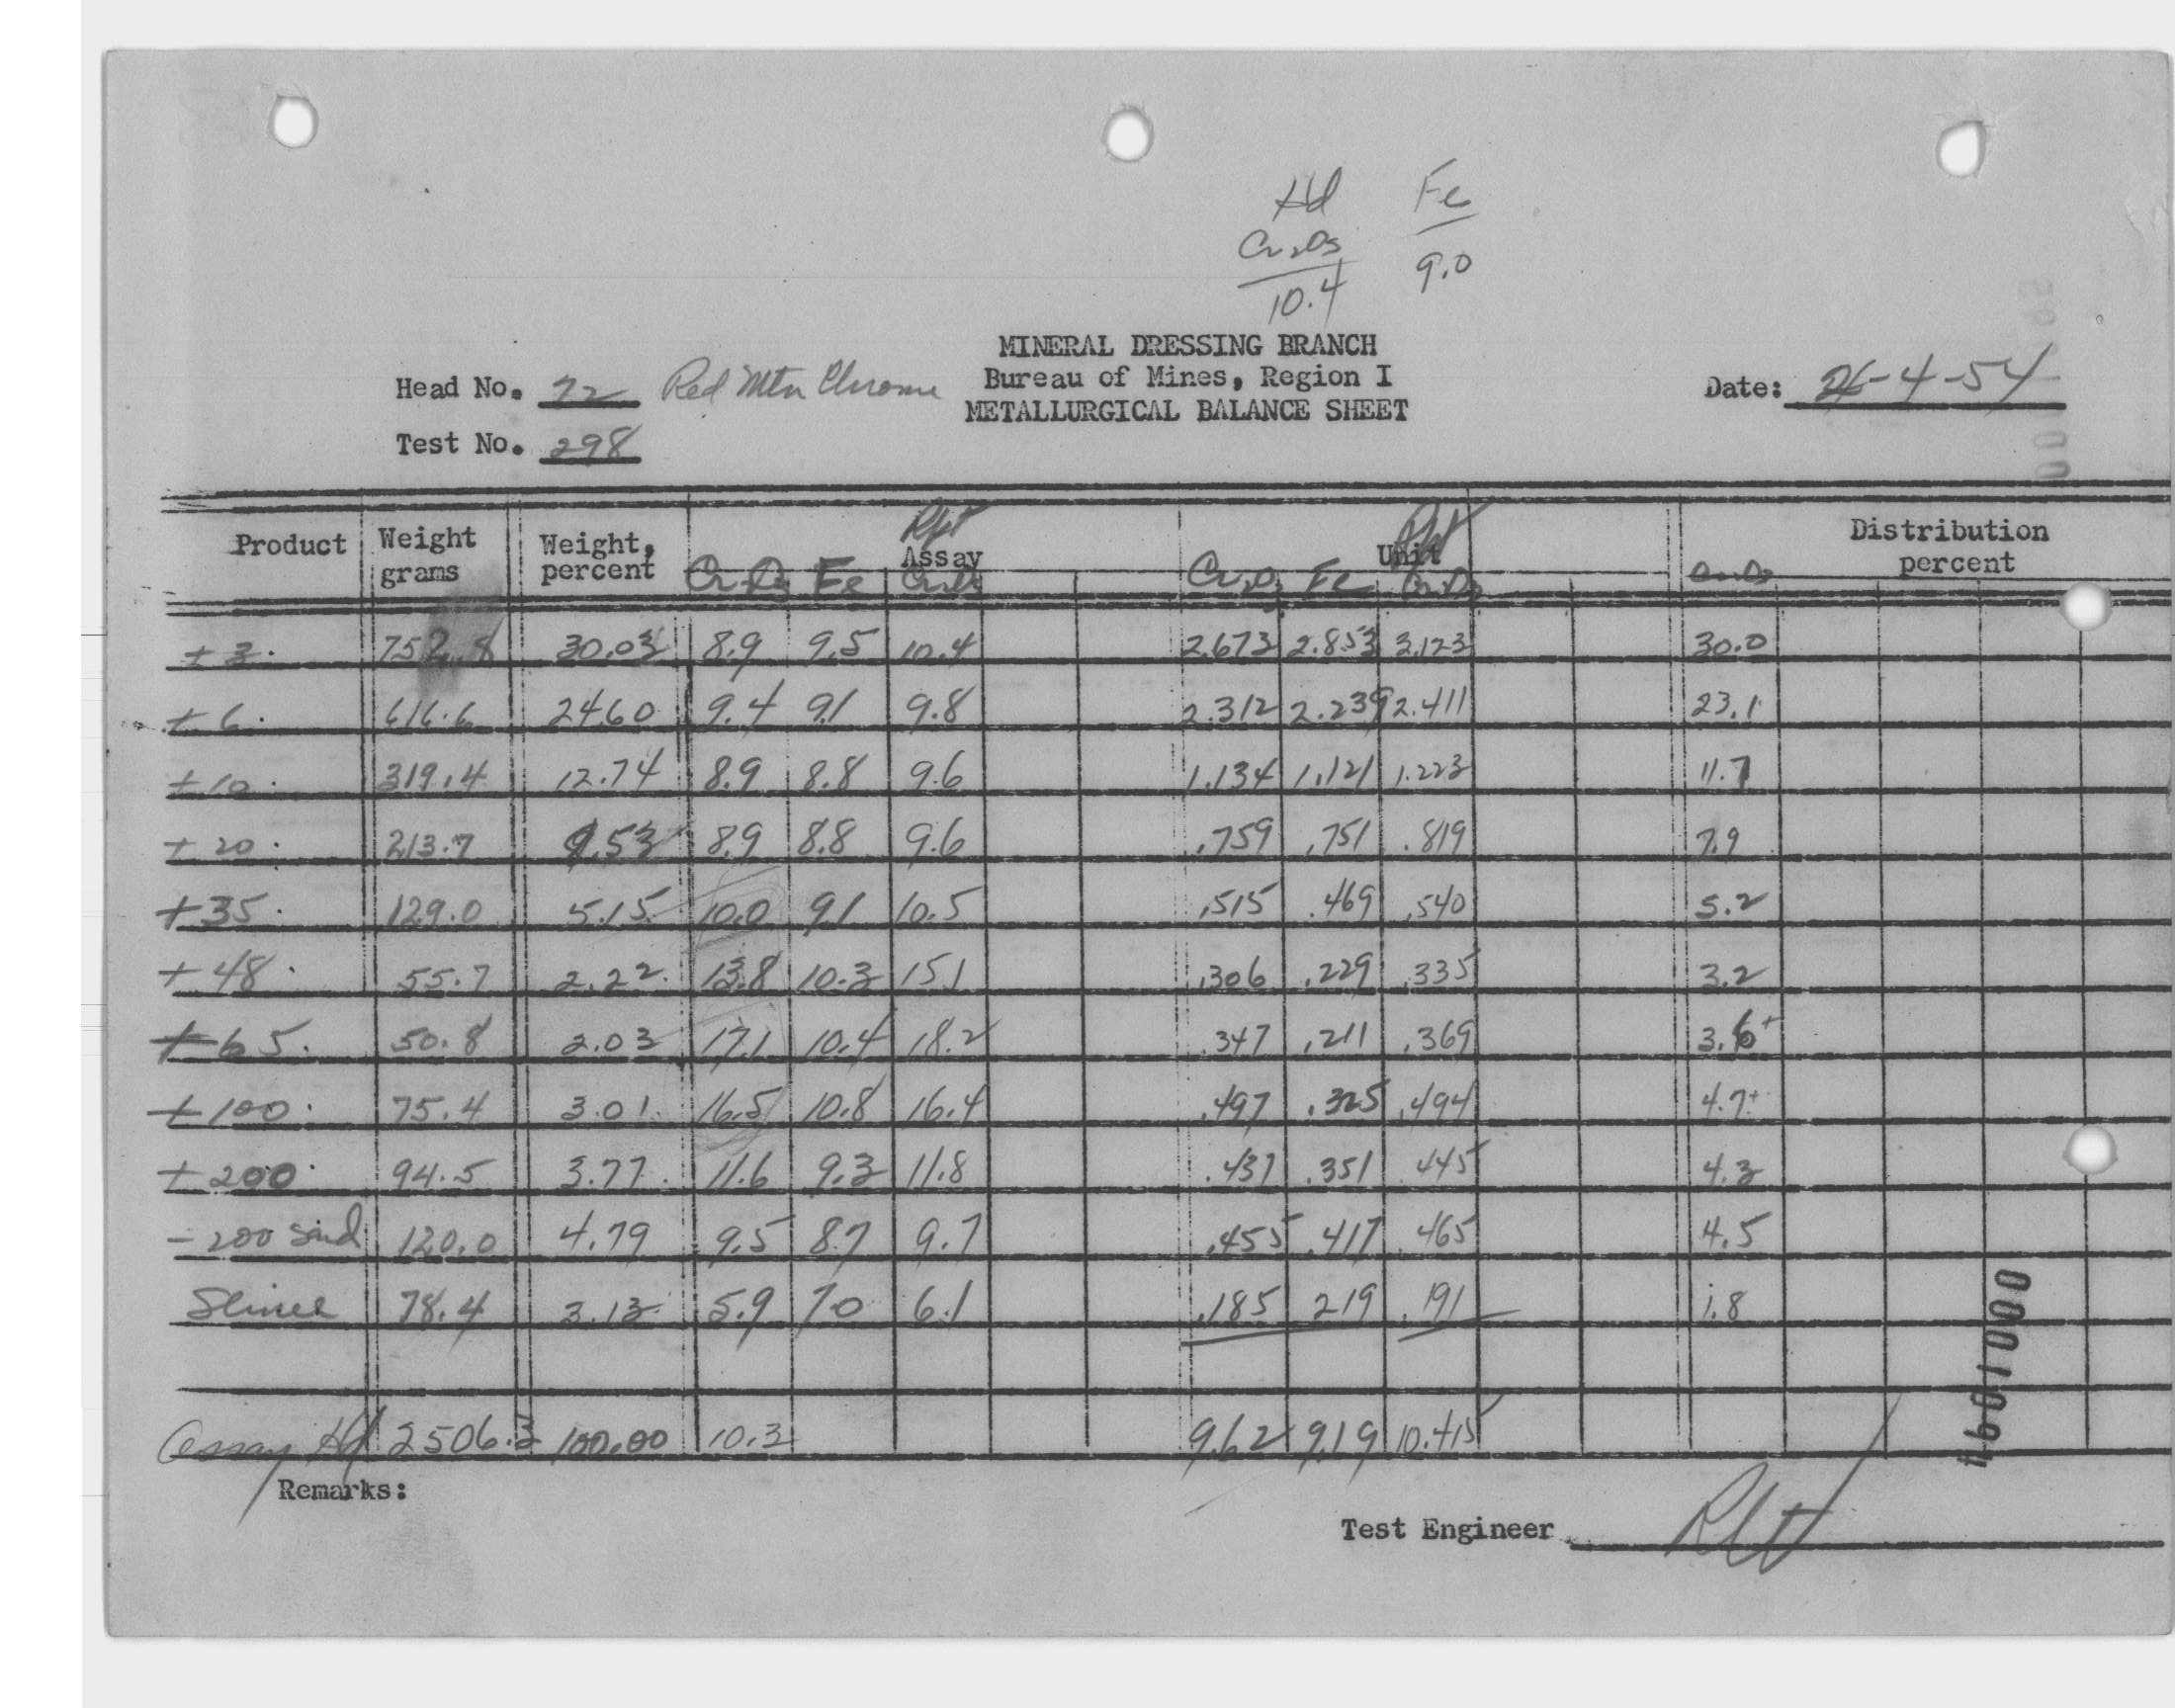 Hd Fe
Cr2O3 9.0
10.4
MINERAL DRESSING BRANCH
Head No. 72 Red Mtn Chrome Bureau of Mines, Region I Date: 2-4-54
METALLURGICAL BALANCE SHEET
Test No. 298
Product Weight grams Weight, percent Rpt Assay Rpt Unit Distribution percent
Cr2O3 Fe Cr2O3 Cr2O3 Fe Cr2O3 Cr2O3
+ 3. 752.8 30.03 8.9 9.5 10.4 2.673 2.853 3.123 30.0
+ 6. 616.6 24.60 9.4 9.1 9.8 2.312 2.239 2.411 23.1
+ 10. 319.4 12.74 8.9 8.8 9.6 1.134 1.121 1.223 11.7
+ 20. 213.7 8.53 8.9 8.8 9.6 .759 .751 .819 7.9
+ 35. 129.0 5.15 10.0 9.1 10.5 .515 .469 .540 5.2
+ 48. 55.7 2.22 13.8 10.3 15.1 .306 .229 .335 3.2
+ 65. 50.8 2.03 17.1 10.4 18.2 .347 .211 .369 3.6+
+ 100. 75.4 3.01 16.5 10.8 16.4 .497 .325 .494 4.7+
+ 200. 94.5 3.77 11.6 9.3 11.8 .437 .351 .445 4.3
- 200 sand 120.0 4.79 9.5 8.7 9.7 .455 .417 .465 4.5
Slimes 78.4 3.13 5.9 7.0 6.1 .185 .219 .191 1.8
Assay Hd 2506.3 100.00 10.3 9.62 9.19 10.415
Remarks:
Test Engineer
0001091